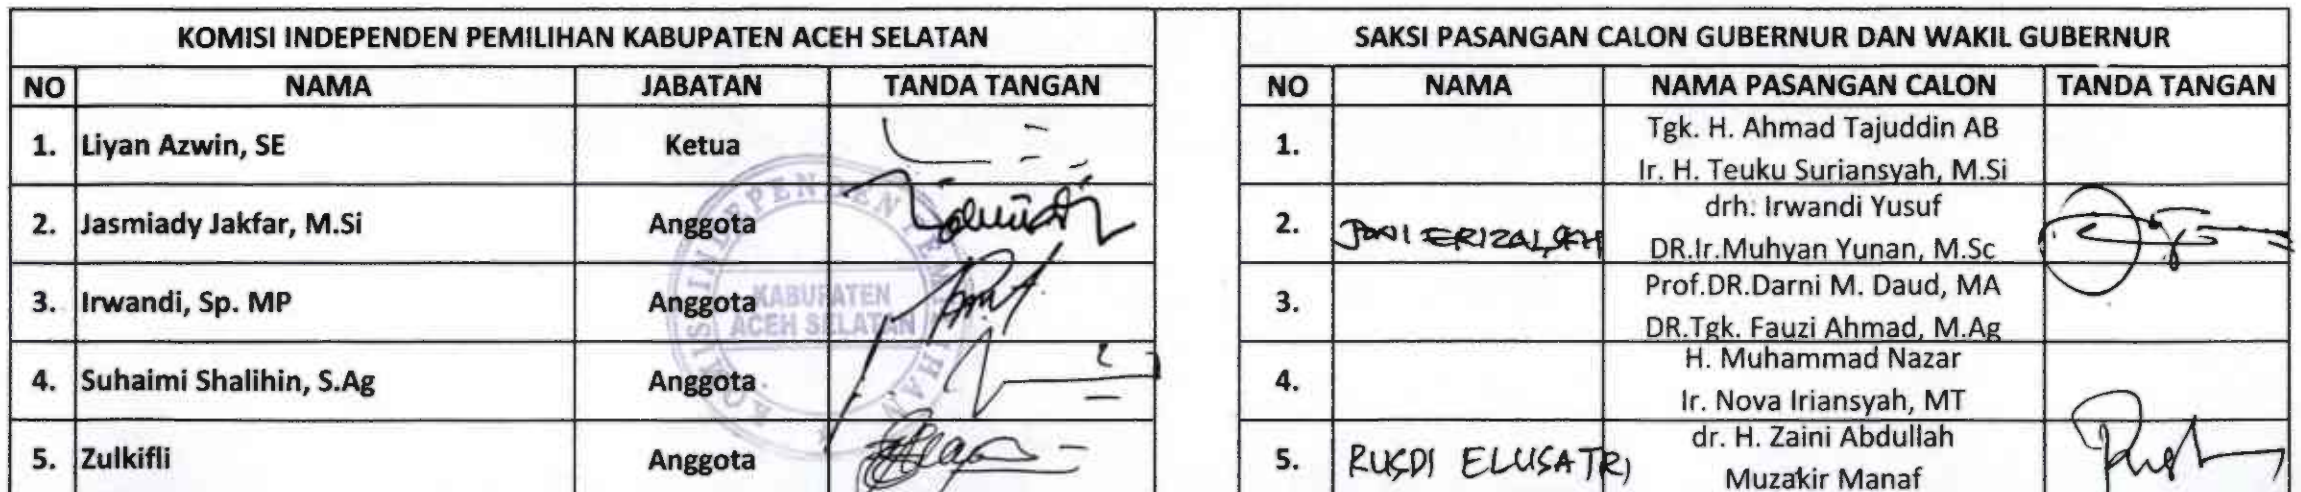 KOMISI INDEPENDEN PEMILIHAN KABUPATEN ACEH SELATAN
NO NAMA JABATAN TANDA TANGAN
1. Liyan Azwin, SE Ketua
2. Jasmiady Jakfar, M.Si Anggota
3. Irwandi, Sp. MP Anggota
4. Suhaimi Shalihin, S.Ag Anggota
5. Zulkifli Anggota
KABUPATEN
ACEH SELATAN
SAKSI PASANGAN CALON GUBERNUR DAN WAKIL GUBERNUR
NO NAMA NAMA PASANGAN CALON TANDA TANGAN
1. Tgk. H. Ahmad Tajuddin AB
Ir. H. Teuku Suriansyah, M.Si
2. drh. Irwandi Yusuf
DR.Ir.Muhyan Yunan, M.Sc
3. Prof.DR.Darni M. Daud, MA
DR.Tgk. Fauzi Ahmad, M.Ag
4. H. Muhammad Nazar
Ir. Nova Iriansyah, MT
5. RUSDI ELUSATRI dr. H. Zaini Abdullah
Muzakir Manaf